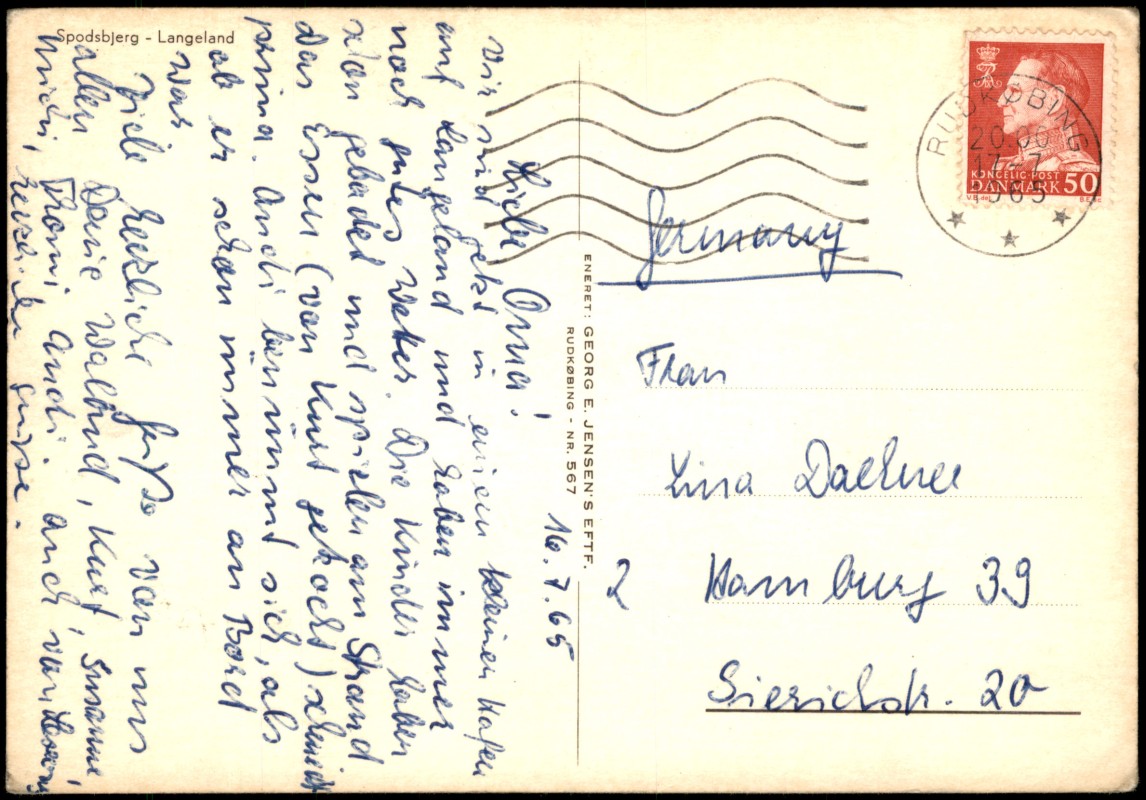 Spodsbjerg - Langeland
16.7.65
Liebe Oma!
Wir sind jetzt in einem kleinen Hafen
auf Langeland und haben immer
noch gutes Wetter. Die Kinder haben
schon gebadet und spielen am Strand
Das Essen (von Kurt gekocht) schmeckt
prima. Andi benimmt sich, als
ob er schon immer an Bord
war
Viele herzliche Grüße von uns
allen Deine Waltraud, Kurt, Susanne
Michi, Thomi, Andi auch von
herzliche Grüße.
ENERET: GEORG E. JENSEN'S EFTF.
RUDKØBING - NR. 567
RUDKØBING
20.00
17-7
1965
KONGELIG POST
DANMARK 50
Germany
Frau
Lina Daehne
2 Hamburg 39
Sierichstr. 20